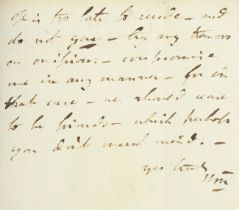 is too late to recede – and
do not you – by any
or omission – compromise
me in any manner – for in
that case – we should cease
to be friends – which perhaps
you don't mind. –
yrs